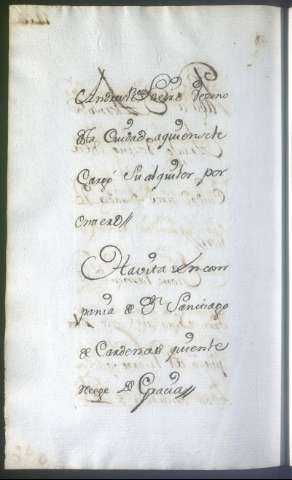 Andres Peres Lopes Vecino
desta Ciudad aquien sele
Cargó Su alquiler por
entero//
Havita en com
pania de Dn Sanctiago
de Cardenas quiente
necge de Gracia//